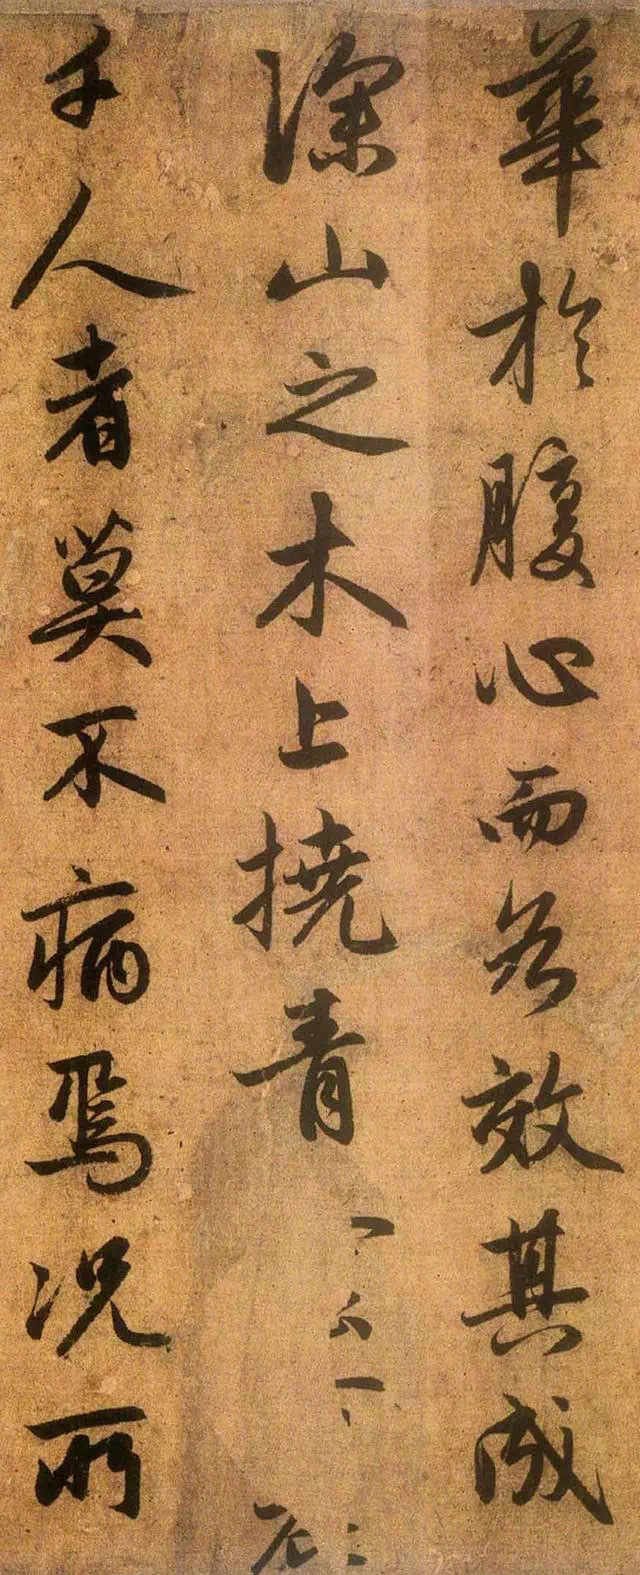 華於腹心而各效其成
深山之木上撓青
千人者莫不病焉況所